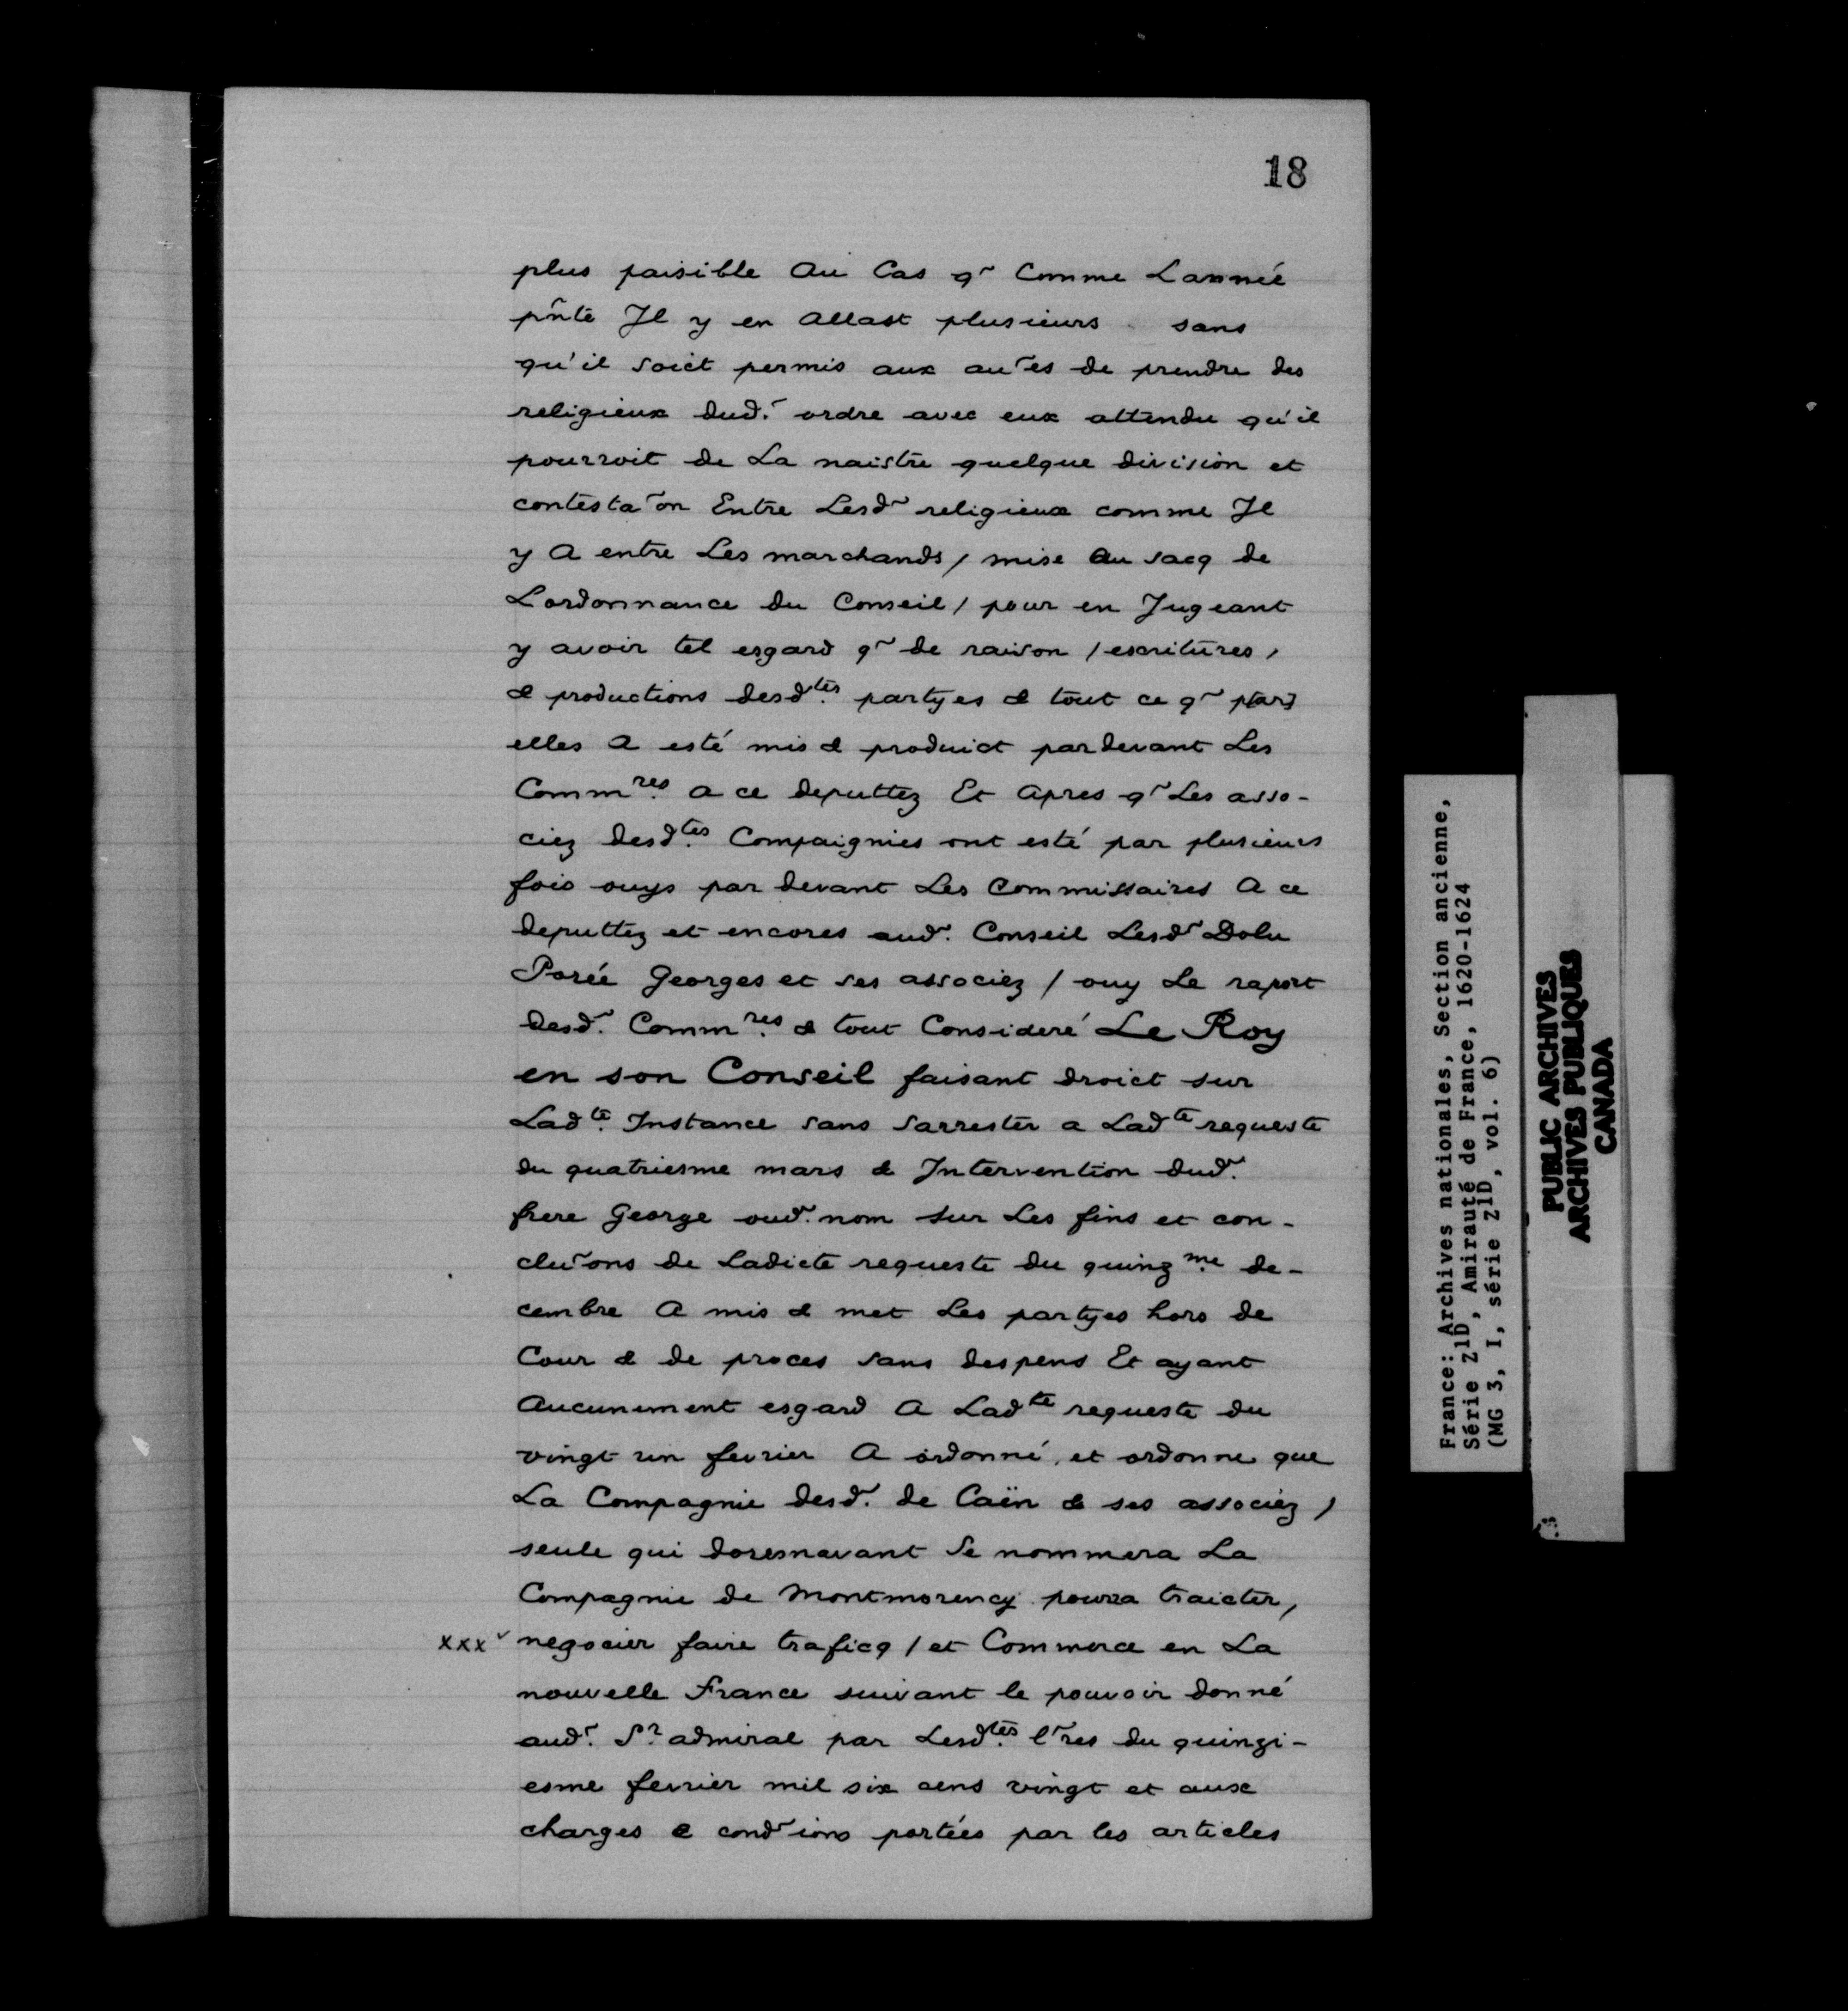 18
plus paisible Au Cas q~ Comme Lannée
pñte Il y en Allast plusieurs sans
qu'il soict permis aux au~es de prendre des
religieux dud.~ ordre avec eux attendu qu'il
pourroit de La naistre quelque division et
contesta~on Entre Lesd~ religieux comme Il
y A entre Les marchands / mise Au sacq de
Lordonnance du Conseil / pour en Jugeant
y avoir tel esgard q~ de raison / escritures,
& productions desd.tes partyes & tout ce q~ p[ar]
elles A esté mis & produict pardevant Les
Comm.res A ce deputtez Et Apres q~ Les asso-
ciez desd.tes Compaignies ont esté par plusieurs
fois ouys par devant Les Commissaires A ce
deputtez et encores aud~. Conseil Lesd~ Dolu
Porée Georges et ses associez / ouy Le raport
desd~. Comm.res & tout Consideré Le Roy
en son Conseil faisant droict sur
Lad.te Instance sans sarrester a Lad.te requeste
du quatriesme mars & Intervention dud~.
frere George oud~. nom sur Les fins et con-
clu~ons de Ladicte requeste du quinz.me de-
cembre A mis & met Les partyes hors de
Cour & de proces sans despens Et ayant
Aucunement esgard A Lad.te requeste du
vingt un fevrier A ordonné, et ordonne que
La Compagnie desd~. de Caën & ses associez,
seule qui doresnavant Se nommera La
Compagnie de Montmorency pourra traicter,
xxx v negocier faire traficq / et Commerce en La
nouvelle France suivant le pouvoir donné
aud~. Sr. admiral par Lesd.tes l~res du quinzi-
esme fevrier mil six cens vingt et aux
charges & cond~ions portées par les articles
France: Archives nationales, Section ancienne,
Série Z1D, Amirauté de France, 1620-1624
(MG 3, I, série Z1D, vol. 6)
PUBLIC ARCHIVES
ARCHIVES PUBLIQUES
CANADA